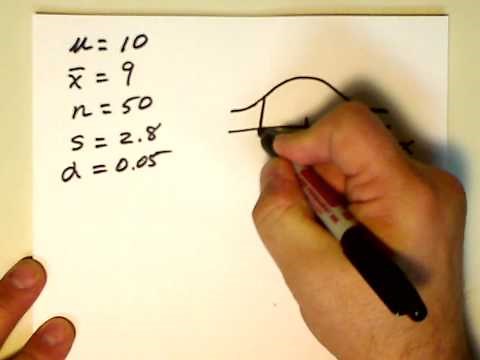 μ = 10
x̄ = 9
n = 50
s = 2.8
α = 0.05